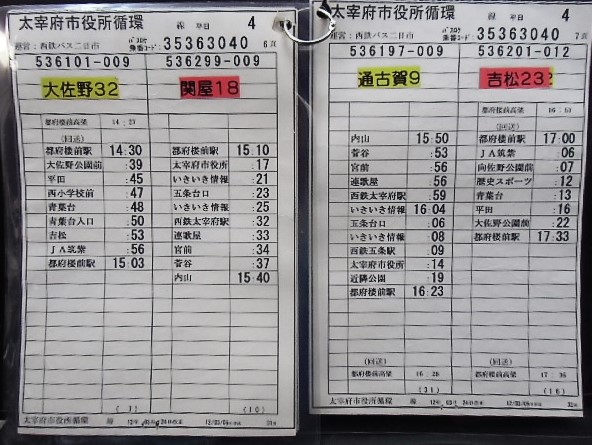 太宰府市役所循環 線 平日 4
運営：西鉄バス二日市 乗番コード：35363040 6頁
536101-009 536299-009
大佐野32 関屋18
都府楼前高架 14:27
(回送)
都府楼前駅 14:30
大佐野公園前 :39
平田 :45
西小学校前 :47
青葉台 :48
青葉台入口 :50
吉松 :53
ＪＡ筑紫 :56
都府楼前駅 15:03
都府楼前駅 15:10
太宰府市役所 :17
いきいき情報 :21
五条台口 :23
いきいき情報 :25
西鉄太宰府駅 :32
連歌屋 :33
宮前 :34
菅谷 :37
内山 15:40
(10)
太宰府市役所循環 線
太宰府市役所循環 線 平日 4
運営：西鉄バス二日市 乗番コード：35363040 7頁
536197-009 536201-012
通古賀9 吉松23
内山 15:50
菅谷 :53
宮前 :56
連歌屋 :56
西鉄太宰府駅 :59
いきいき情報 16:04
五条台口 :06
いきいき情報 :08
西鉄五条駅 :09
太宰府市役所 :14
近隣公園 :19
都府楼前駅 16:23
(回送)
都府楼前高架 16:26
(31)
都府楼前高架
(回送)
都府楼前駅 17:00
ＪＡ筑紫 :06
向佐野公園前 :07
歴史スポーツ :12
青葉台 :13
平田 :16
大佐野公園前 :22
都府楼前駅 17:33
(回送)
都府楼前高架 17:36
(16)
太宰府市役所循環 線